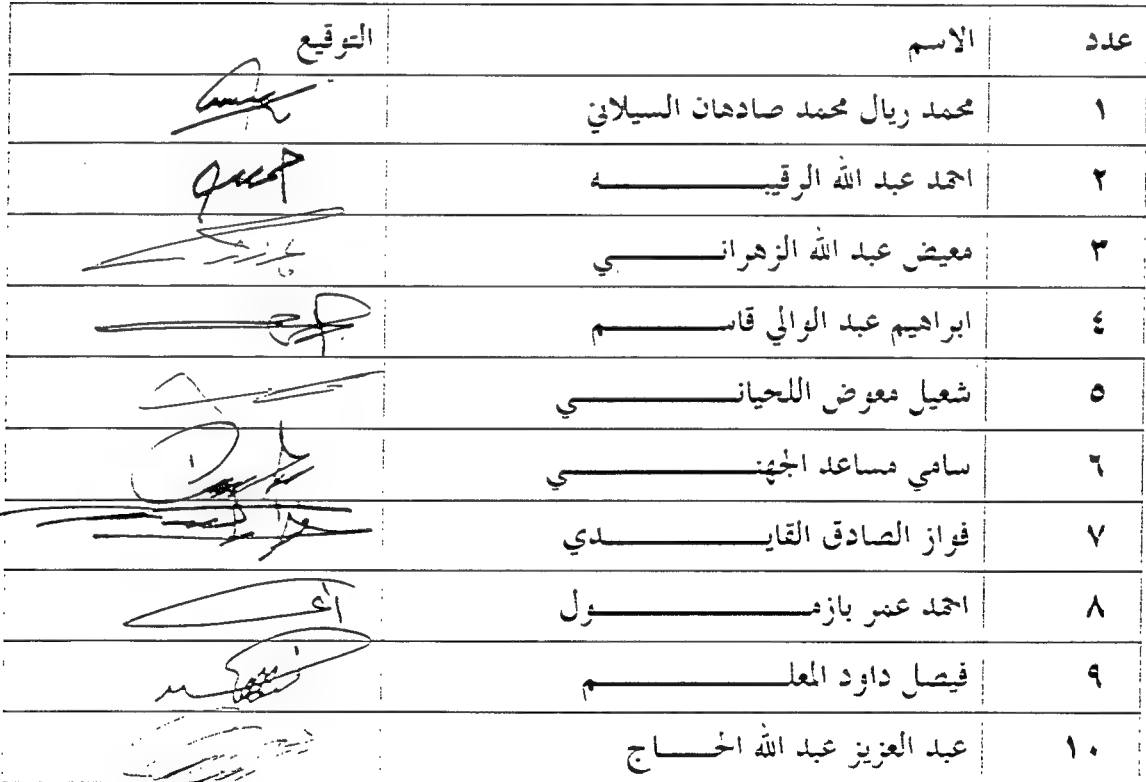 عدد الاسم التوقيع
١ محمد ريال محمد صادهان السيلاني
٢ احمد عبد الله الرقيبـــــــــه
٣ معيض عبد الله الزهرانـــــــي
٤ ابراهيم عبد الوالي قاســـــــم
٥ شعيل معوض اللحيانـــــــــي
٦ سامي مساعد الجهنـــــــــــي
٧ فواز الصادق القايـــــــــدي
٨ احمد عمر بازمـــــــــــول
٩ فيصل داود المعلـــــــــــم
١٠ عبد العزيز عبد الله الحـــــاج